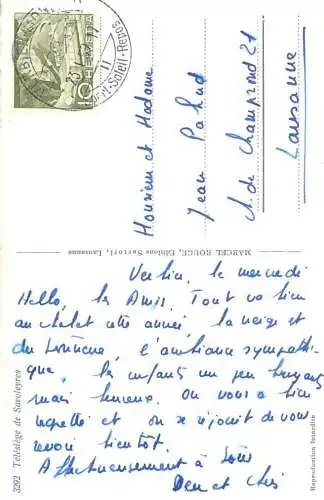 HELVETIA
10
Soleil-Repos
Monsieur et Madame
Jean Pahud
de Champrond 21
Lausanne
MARCEL ROUGE, Editions Sartori, Lausanne
Verbier, le mercredi
Hello, les Amis. Tout va bien
au chalet cette année, la neige est
du tonnerre, l'ambiance sympathi-
que, les enfants un peu bruyants
mais heureux. On vous a bien
regretté et on se réjouit de vous
revoir bientôt.
Affectueusement à tous
3292 Télésiège de Savoleyres
Reproduction interdite